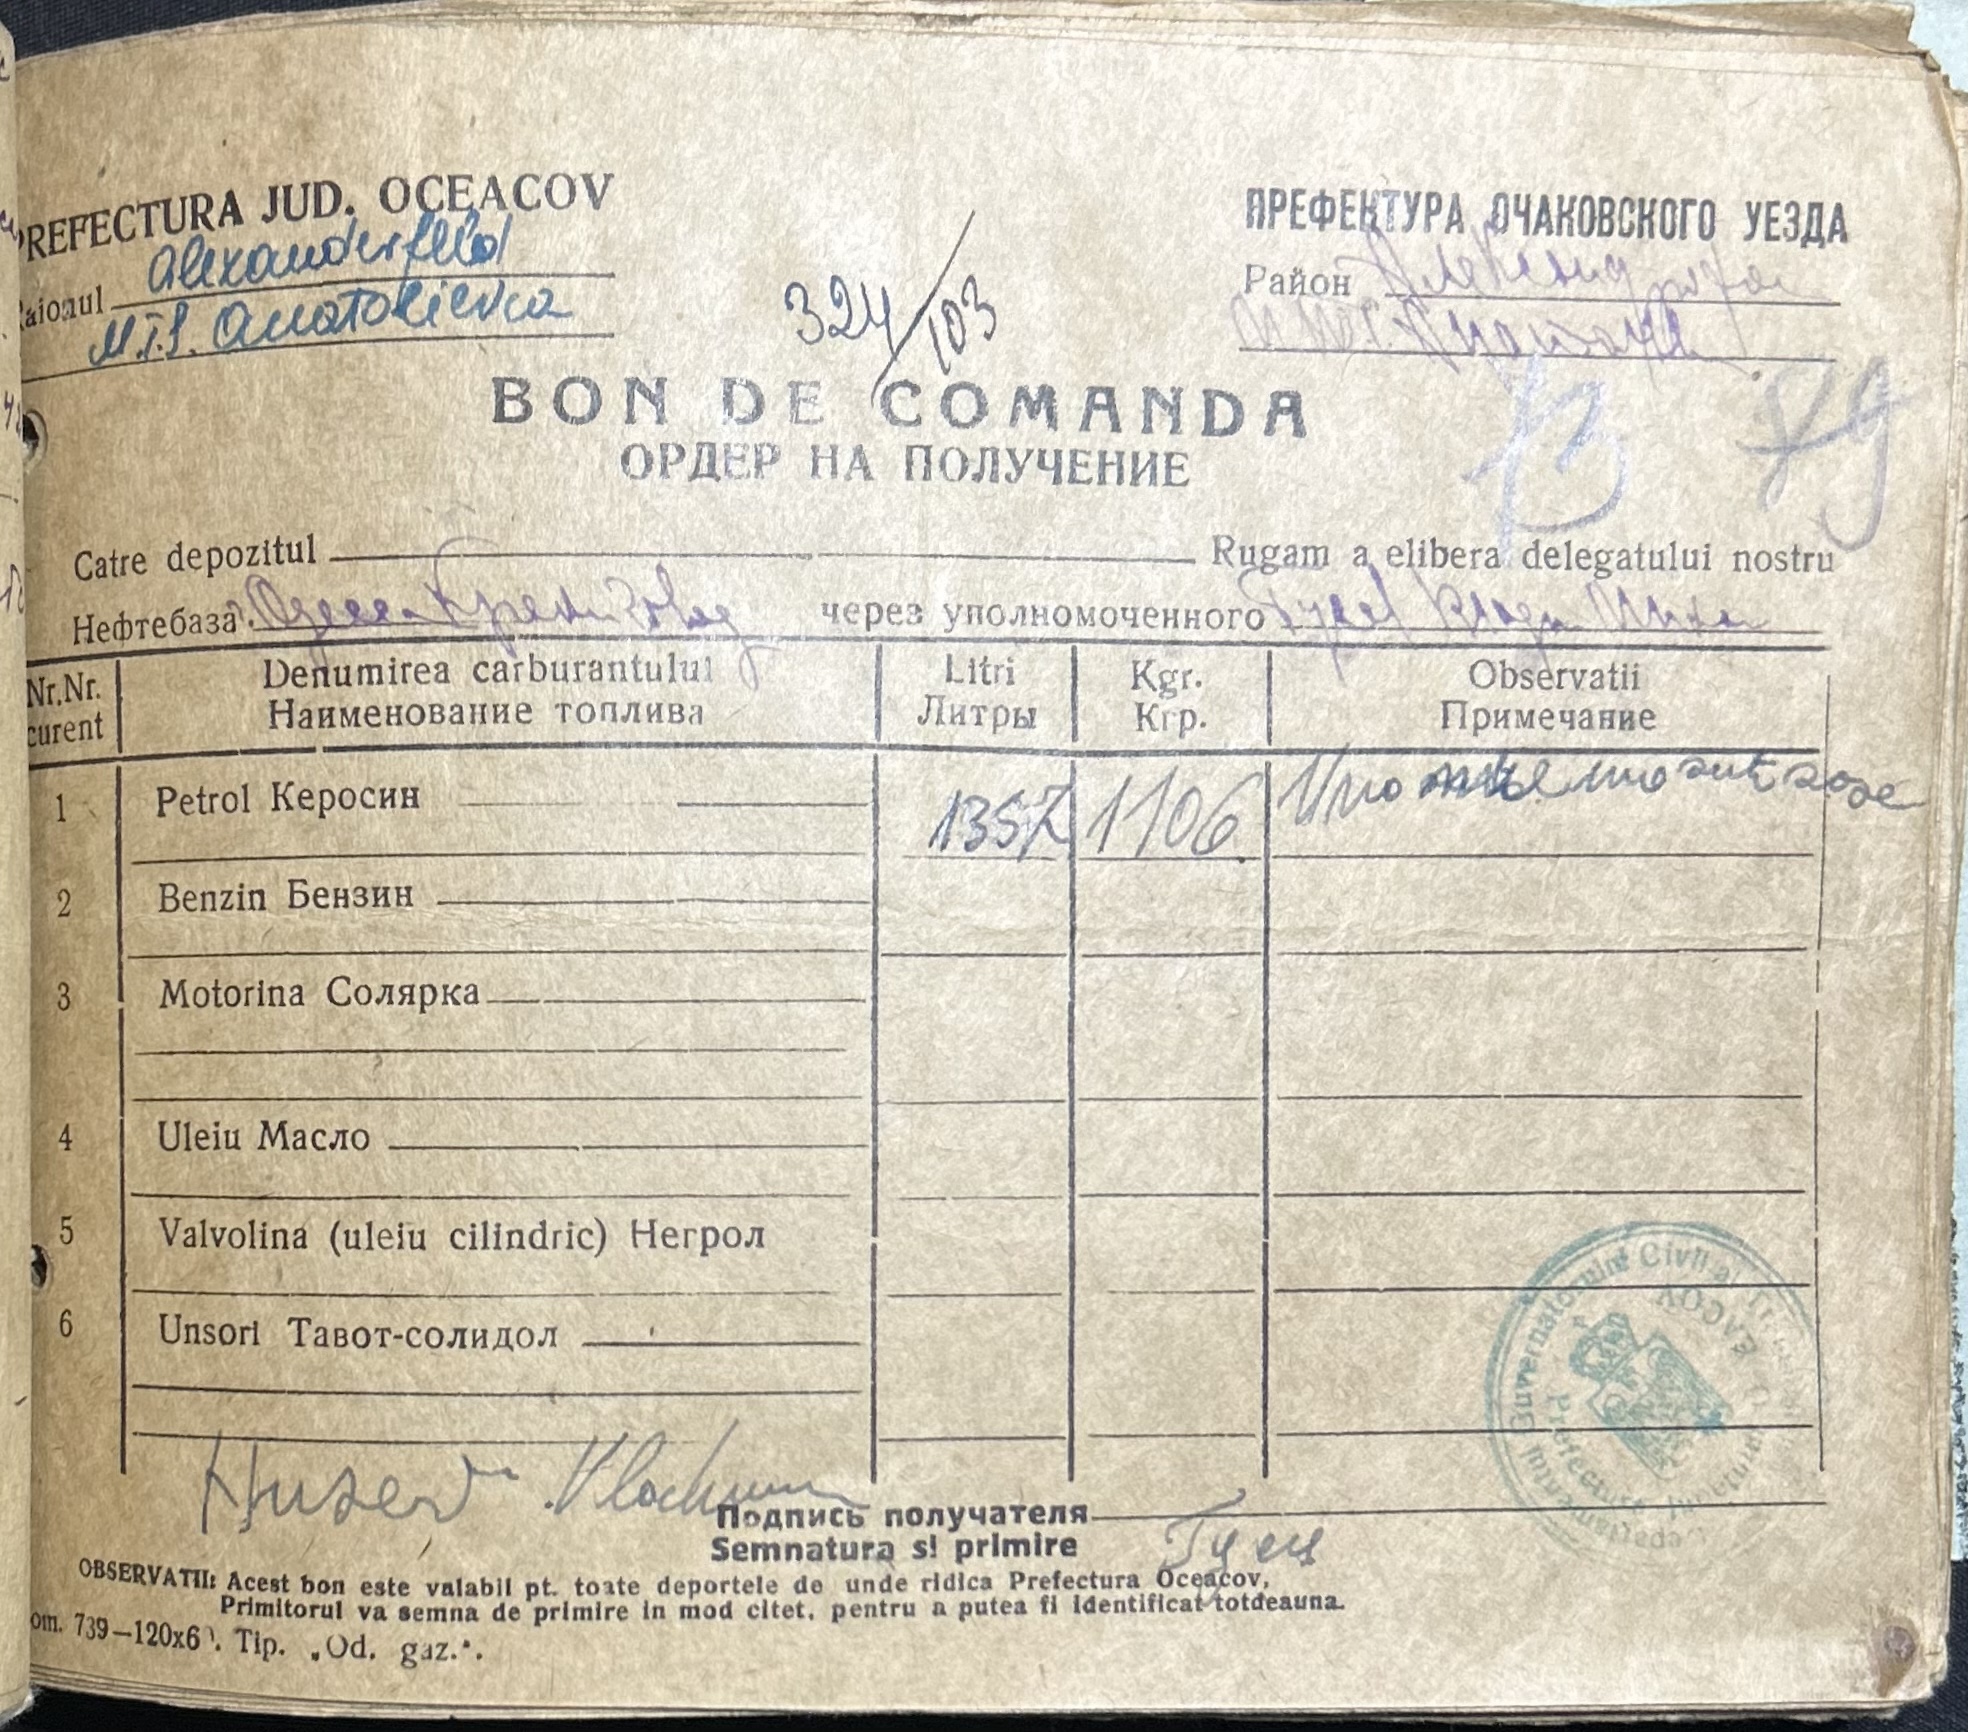 PREFECTURA JUD. OCEACOV
Raionul Alexanderfeld
M.T.S. Anatolievca
324/103
ПРЕФЕКТУРА ОЧАКОВСКОГО УЕЗДА
Район
BON DE COMANDA
ОРДЕР НА ПОЛУЧЕНИЕ
13 79
Catre depozitul Rugam a elibera delegatului nostru
Нефтебаза Одесса через уполномоченного
Nr. Nr. curent
Denumirea carburantului
Наименование топлива
Litri
Литры
Kgr.
Кгр.
Observatii
Примечание
1 Petrol Керосин 1357 1106 Una mie una suta sase
2 Benzin Бензин
3 Motorina Солярка
4 Uleiu Масло
5 Valvolina (uleiu cilindric) Негрол
6 Unsori Тавот-солидол
Huser
Подпись получателя
Semnatura si primire
OBSERVATII: Acest bon este valabil pt. toate deportele de unde ridica Prefectura Oceacov,
Primitorul va semna de primire in mod citet, pentru a putea fi identificat totdeauna.
om. 739—120x6 . Tip. „Od. gaz.“.
Guvernatorul Civil al
Prefectura Judetului